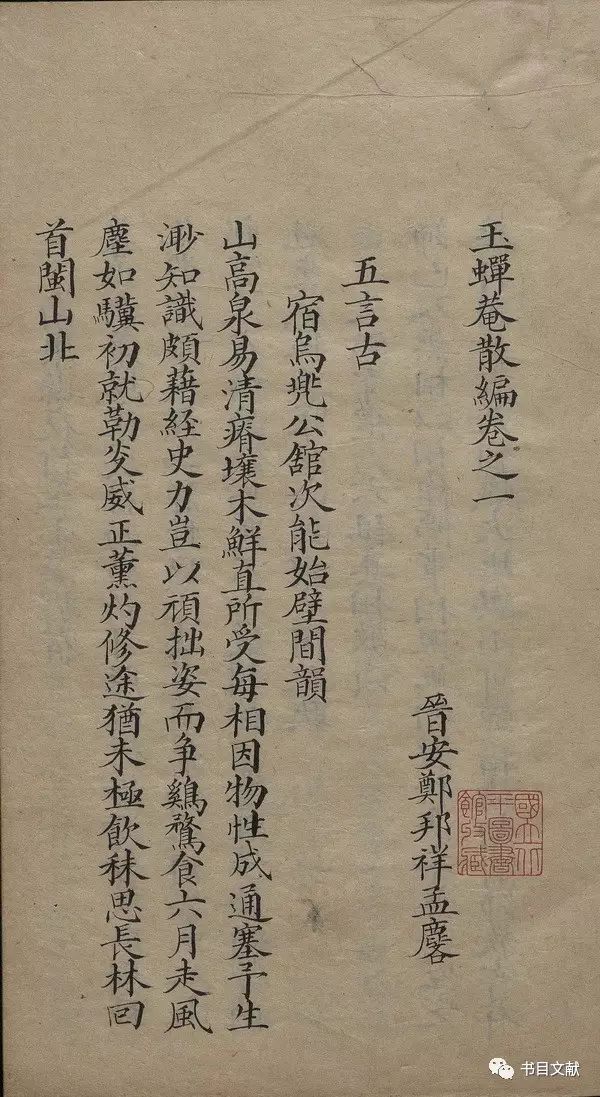 玉蟬菴散編卷之一
晉安鄭邦祥孟麐
國立北
平圖書
館收藏
五言古
宿烏兠公舘次能始壁間韻
山高泉易清瘠壤木鮮直所受每相因物性成通塞予生
渺知識頗藉経史力豈以頑拙姿而争鷄鶩食六月走風
塵如驥初就勒炎威正薰灼修途猶未極飲秣思長林回
首閩山北
书目文献